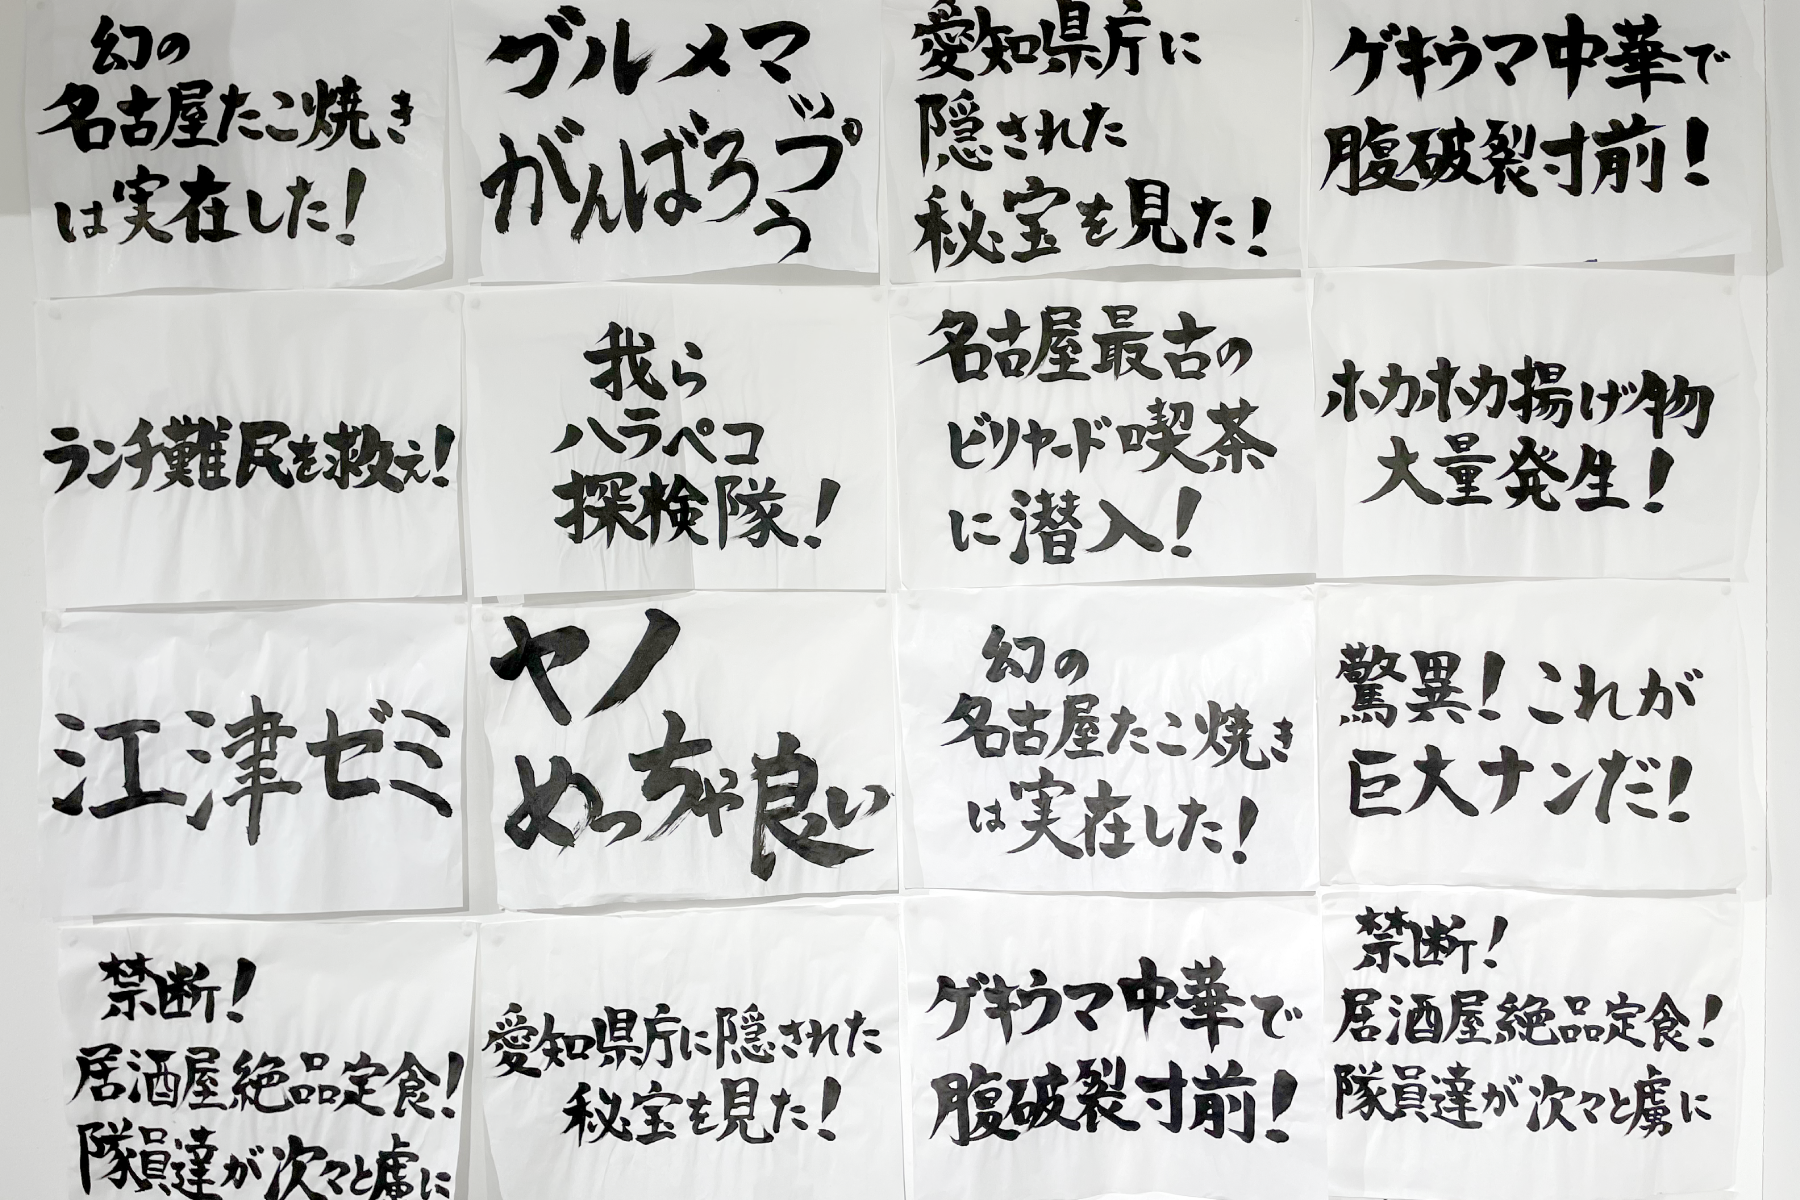 幻の
名古屋たこ焼き
は実在した!
グルメマップ
がんばろう
愛知県庁に
隠された
秘宝を見た!
ゲキウマ中華で
腹破裂寸前!
ランチ難民を救え!
我ら
ハラペコ
探検隊!
名古屋最古の
ビリヤード喫茶
に潜入!
ホカホカ揚げ物
大量発生!
江津ゼミ
ヤノ
めっちゃ良い
幻の
名古屋たこ焼き
は実在した!
驚異!これが
巨大ナンだ!
禁断!
居酒屋絶品定食!
隊員達が次々と虜に
愛知県庁に隠された
秘宝を見た!
ゲキウマ中華で
腹破裂寸前!
禁断!
居酒屋絶品定食!
隊員達が次々と虜に